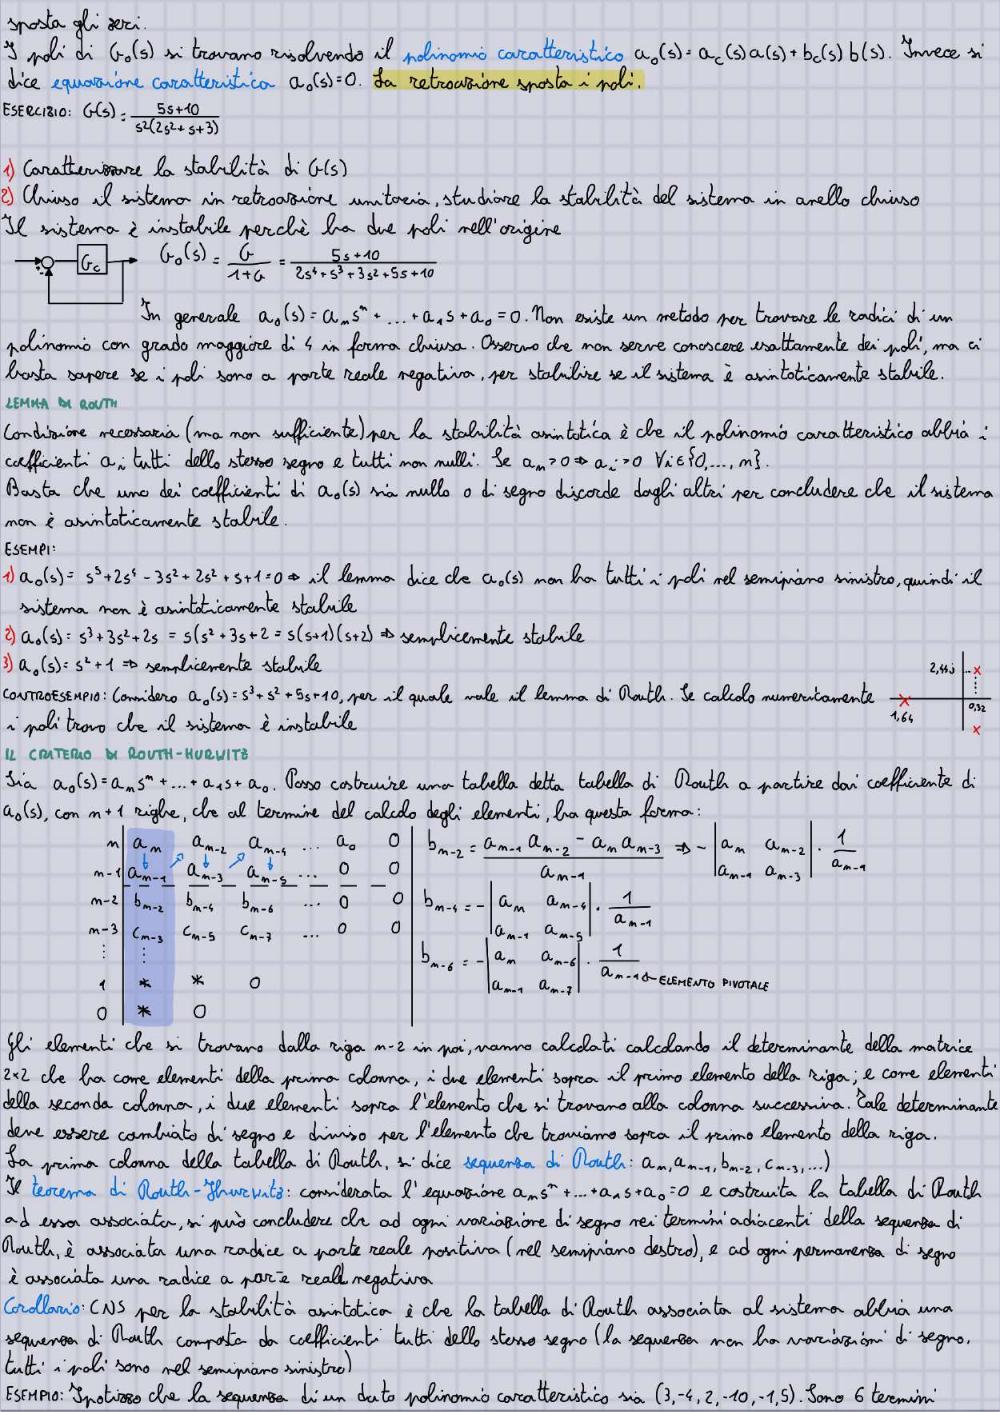 sposta gli zeri.
I poli di G₀(s) si trovano risolvendo il polinomio caratteristico a₀(s)=a_c(s)a(s)+b_c(s)b(s). Invece si
dice equazione caratteristica a₀(s)=0. La retroazione sposta i poli.
ESERCIZIO: G(s)= (5s+10)/(s²(2s²+s+3))
1) Caratterizzare la stabilità di G(s)
2) Chiuso il sistema in retroazione unitaria, studiare la stabilità del sistema in anello chiuso
Il sistema è instabile perchè ha due poli nell'origine
G_c G₀(s) = G/(1+G) = (5s+10)/(2s⁴+s³+3s²+5s+10)
In generale a₀(s)=a_n sⁿ+...+a₁s+a₀=0. Non esiste un metodo per trovare le radici di un
polinomio con grado maggiore di 4 in forma chiusa. Osservo che non serve conoscere esattamente dei poli, ma ci
basta sapere se i poli sono a parte reale negativa, per stabilire se il sistema è asintoticamente stabile.
LEMMA DI ROUTH
Condizione necessaria (ma non sufficiente) per la stabilità asintotica è che il polinomio caratteristico abbia i
coefficienti a_i tutti dello stesso segno e tutti non nulli. Se a_n>0 ⇒ a_i>0 ∀i∈{0,...,n}.
Basta che uno dei coefficienti di a₀(s) sia nullo o di segno discorde dagli altri per concludere che il sistema
non è asintoticamente stabile.
ESEMPI:
1) a₀(s)= s⁵+2s⁴-3s²+2s²+s+1=0 ⇒ il lemma dice che a₀(s) non ha tutti i poli nel semipiano sinistro, quindi il
sistema non è asintoticamente stabile
2) a₀(s)= s³+3s²+2s = s(s²+3s+2 = s(s+1)(s+2) ⇒ semplicemente stabile
3) a₀(s)= s²+1 ⇒ semplicemente stabile
CONTROESEMPIO: Considero a₀(s)=s³+s²+5s+10, per il quale vale il lemma di Routh. Se calcolo numericamente
i poli trovo che il sistema è instabile
2,44j
1,64 0,32
IL CRITERIO DI ROUTH-HURWITZ
Sia a₀(s)=a_n sⁿ+...+a₁s+a₀. Posso costruire una tabella detta tabella di Routh a partire dai coefficiente di
a₀(s), con n+1 righe, che al termine del calcolo degli elementi, ha questa forma:
n | a_n a_{n-2} a_{n-4} ... a₀ 0
n-1 | a_{n-1} a_{n-3} a_{n-5} ... 0 0
n-2 | b_{n-2} b_{n-4} b_{n-6} ... 0 0
n-3 | c_{n-3} c_{n-5} c_{n-7} ... 0 0
⋮ ⋮
1 | * * 0
0 | * 0
b_{n-2} = (a_{n-1} a_{n-2} - a_n a_{n-3})/a_{n-1} ⇒ - |a_n a_{n-2}; a_{n-1} a_{n-3}| · 1/a_{n-1}
b_{n-4} = - |a_n a_{n-4}; a_{n-1} a_{n-5}| · 1/a_{n-1}
b_{n-6} = - |a_n a_{n-6}; a_{n-1} a_{n-7}| · 1/a_{n-1} ← ELEMENTO PIVOTALE
Gli elementi che si trovano dalla riga n-2 in poi, vanno calcolati calcolando il determinante della matrice
2×2 che ha come elementi della prima colonna, i due elementi sopra il primo elemento della riga; e come elementi
della seconda colonna, i due elementi sopra l'elemento che si trovano alla colonna successiva. Tale determinante
deve essere cambiato di segno e diviso per l'elemento che troviamo sopra il primo elemento della riga.
La prima colonna della tabella di Routh, si dice sequenza di Routh: a_n, a_{n-1}, b_{n-2}, c_{n-3}, ...)
Il teorema di Routh-Hurwitz: considerata l'equazione a_n sⁿ+...+a₁s+a₀=0 e costruita la tabella di Routh
ad essa associata, si può concludere che ad ogni variazione di segno nei termini adiacenti della sequenza di
Routh, è associata una radice a parte reale positiva (nel semipiano destro), e ad ogni permanenza di segno
è associata una radice a parte reale negativa
Corollario: CNS per la stabilità asintotica è che la tabella di Routh associata al sistema abbia una
sequenza di Routh composta da coefficienti tutti dello stesso segno (la sequenza non ha variazioni di segno,
tutti i poli sono nel semipiano sinistro)
ESEMPIO: Ipotizzo che la sequenza di un dato polinomio caratteristico sia (3,-4,2,-10,-1,5). Sono 6 termini